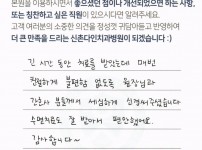 본원을 이용하시면서 좋으셨던 점이나 개선되었으면 하는 사항,
또는 칭찬하고 싶은 직원이 있으시다면 알려주세요.
고객 여러분의 소중한 의견을 겸청 귀담아듣고 반영하여
더 큰 만족을 드리는 신촌다인치과병원이 되겠습니다 :)
긴 시간 동안 치료를 받았는데 매번
친절하게 불편함 없도록 원장님과
간호사 분들께서 세심하게 신경써주셨습니다
수면치료도 잘 받아서 편안했어요.
감사합니다~